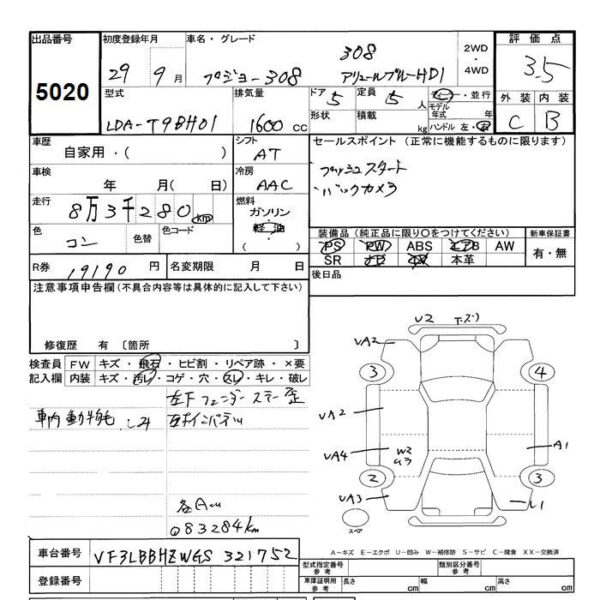 出品番号 初度登録年月 車名・グレード 評価点
5020
308 2WD
29年 9月 プジョー308 アリュールブルーHDI 4WD 3.5
型式 排気量 ドア 5 定員 5人 ディーラー・並行
外装 内装
LDA-T9BH01 1600cc 形状 積載 kg モデル年式 年 ハンドル 左・右 C B
車歴 自家用・( ) シフト AT セールスポイント (正常に機能するものに限ります)
プッシュスタート
車検 年 月( 日) 冷房 AAC バックカメラ
走行 8万3千280 km 燃料 ガソリン・軽油・( )
色 コン 色替 色コード
装備品 (純正品に限り○をつけてください) 新車保証書
PS PW ABS エアB AW 有・無
R券 19190円 名変期限 月 日 SR ナビ TV 本革
注意事項申告欄 (不具合内容等は具体的に記入して下さい) 後日品
修復歴 有 〔箇所 〕
検査員記入欄 FW キズ・飛石・ヒビ割・リペア跡・×要
内装 キズ・汚レ・コゲ・穴・スレ・キレ・破レ
左下フェンダーステー歪
車内動物毛 シミ
083284km
U2
VA2
3 4
VA2
VA4 W2 A1
2 3
VA3 L1
スペア
A−キズ E−エクボ U−凹み W−補修跡 S−サビ C−腐食 XX−交換済
車台番号 VF3LBBHZWGS321752
型式指定番号 参考 類別区分番号 参考
登録番号
車庫証明用 参考 長さ cm 幅 cm 高さ cm